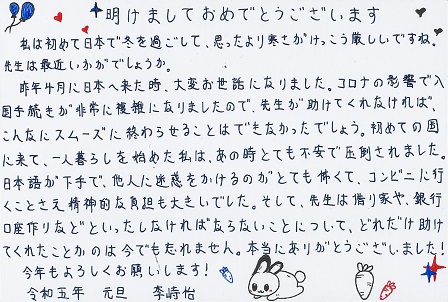 明けましておめでとうございます
私は初めて日本で冬を過ごして、思ったより寒さがけっこう厳しいですね。
先生は最近いかがでしょうか。
昨年4月に日本へ来た時、大変お世話になりました。コロナの影響で入
国手続きが非常に複雑になりましたので、先生が助けてくれなければ、
こんなにスムーズに終わらせることはできなかったでしょう。初めての国
に来て、一人暮らしを始めた私は、あの時とても不安で圧倒されました。
日本語が下手で、他人に迷惑をかけるのがとても怖くて、コンビニに行
くことさえ精神的な負担も大きいでした。そして、先生は借り家や、銀行
口座作りなど”といったしなければならないことについて、どれだけ助け
てくれたことかのは今でも忘れません。本当にありがとうございました!
今年もよろしくお願いします!
令和五年 元旦 李峙怡